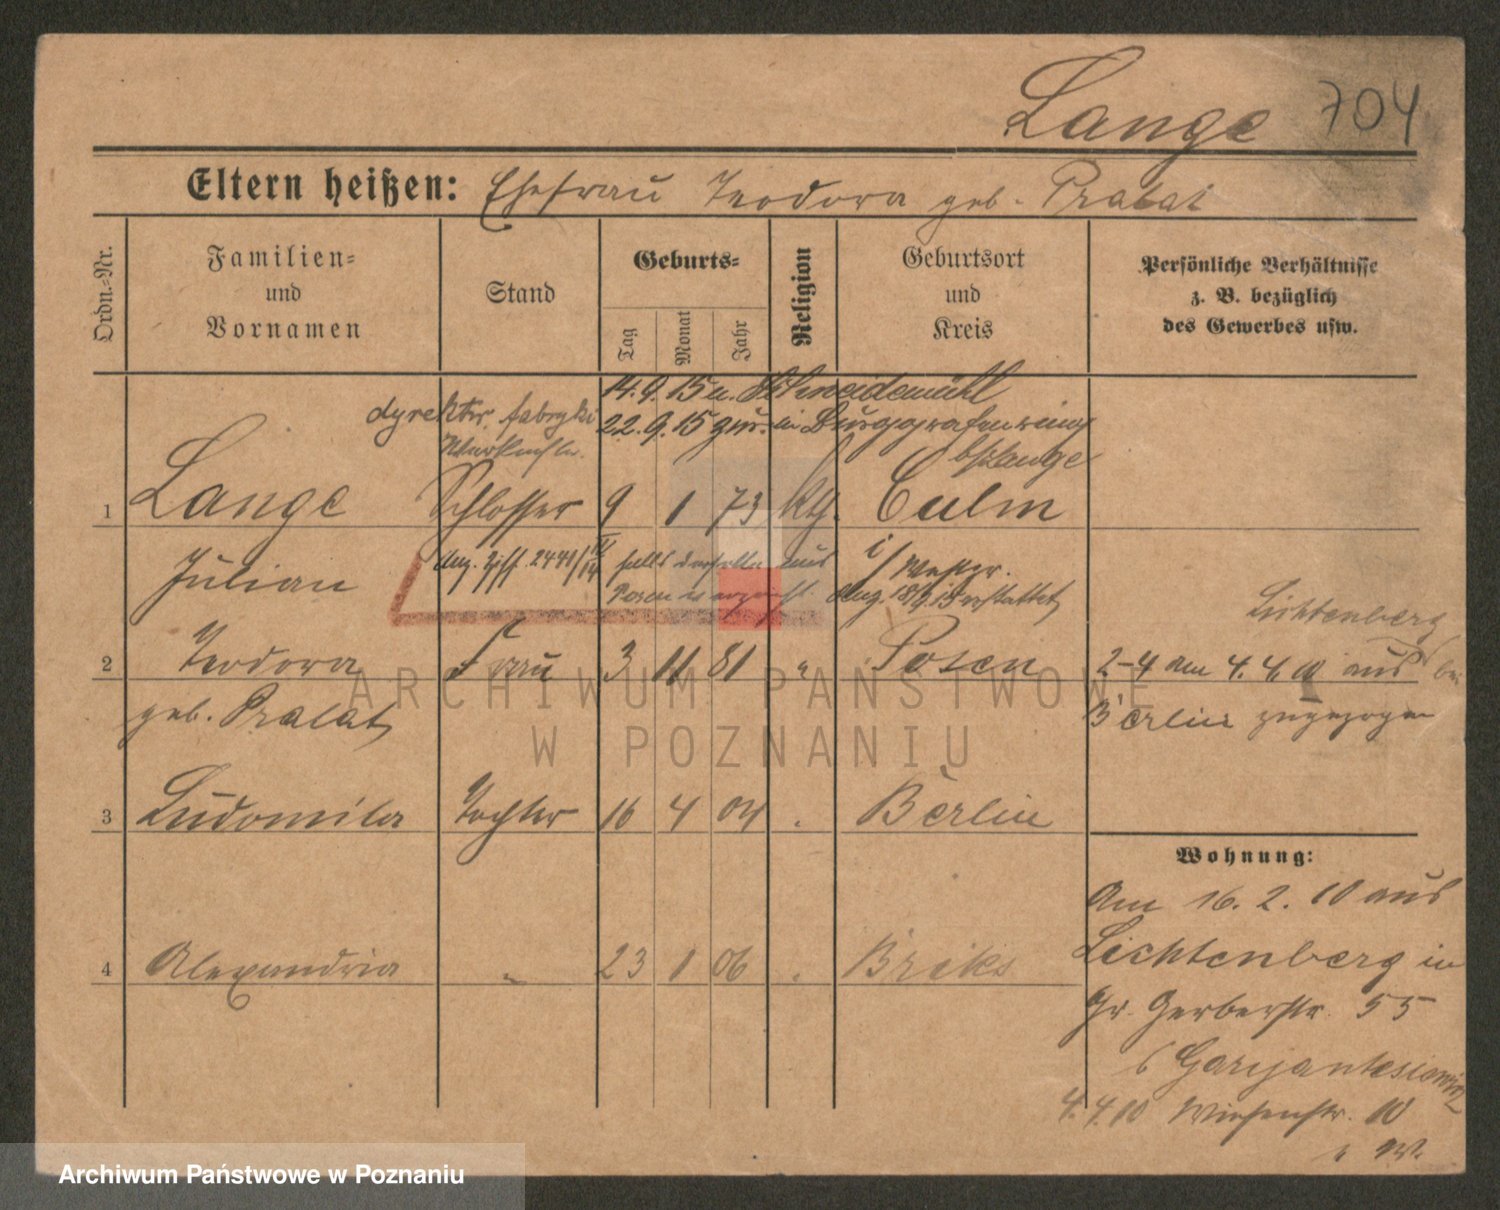 Lange 704
Eltern heißen: Ehefrau Teodora geb. Pralat
Ordn.-Nr.
Familien-
und
Vornamen
Stand
Geburts-
Tag
Monat
Jahr
Religion
Geburtsort
und
Kreis
Persönliche Verhältnisse
z. B. bezüglich
des Gewerbes usw.
14. 9. 15 n. Schneidemühl
dyrektor fabryki 22. 9. 15 zur. in Burggrafenring
bslange
1 Lange Schlosser 9 1 73 kth. Culm
Julian
falls derselbe aus
Posen verzieht
i/ Westpr.
Lichtenberg
2 Teodora Frau 3 11 81 " Posen 2-4 am 4. 4. 10 aus
geb. Pralat Berlin zugezogen
3 Ludomila Tochter 16 4 04 Berlin
Wohnung:
Am 16. 2. 10 aus
Lichtenberg in
4 Alexandria " 23 1 06 Briks
Gr. Gerberstr. 55
b Garyantesiewicz
4. 4. 10 Wiesenstr. 10
ARCHIWUM PAŃSTWOWE
W POZNANIU
Archiwum Państwowe w Poznaniu